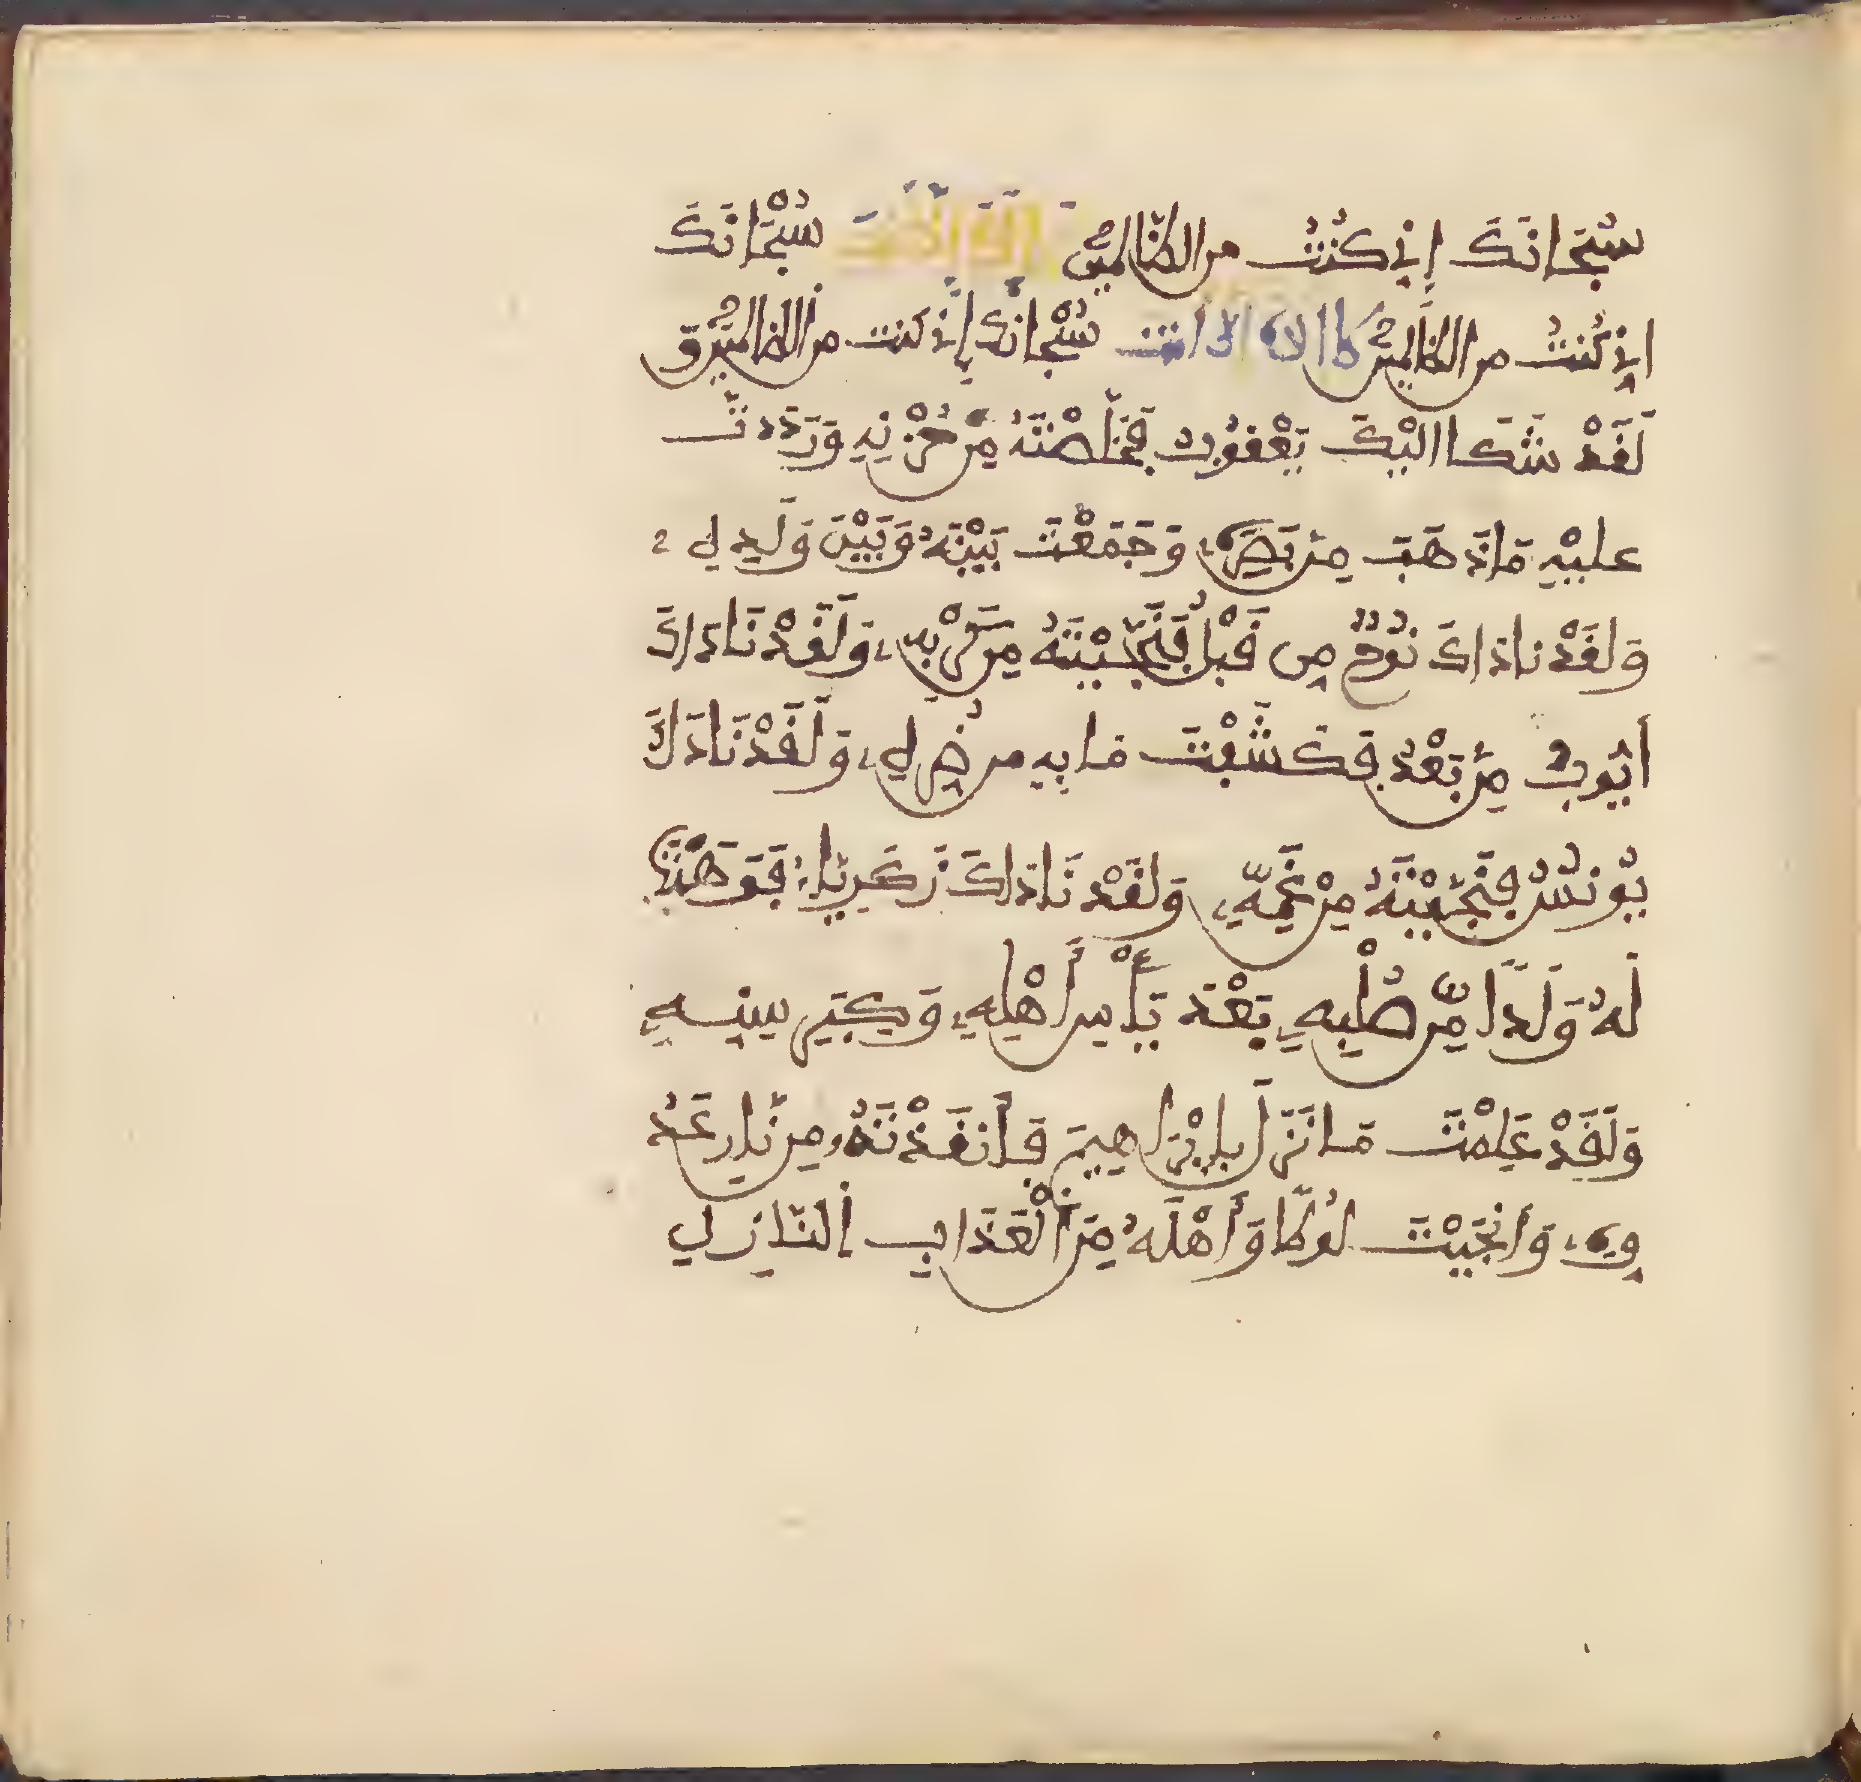 سُبْحَانَكَ إِنِّي كُنْتُ من الظَّالمين لا إِلَهَ إِلَّا أَنْتَ سُبْحَانَكَ
إنِّي كُنْتُ من الظالمين لا اله الا انت سُبْحَانَكَ إِنِّي كنت من الظالمين وَ
لَقَدْ شَكَا اليْكَ يَعْقُوبُ فَخَلَّصْتَهُ مِنْ حُزْنِهِ وَرَدَدتَ
عليْهِ مَا ذَهَبَ مِنْ بَصَرِهِ وَجَمَعْتَ بَيْنَهُ وَبَيْنَ وَلَدِهِ
وَلَقَدْ نادَاكَ نُوحٌ مِن قَبْلُ فَنَجَّيْتَهُ مِن كَرْبِهِ وَلَقَدْ نَادَاكَ
أيُّوبُ مِنْ بَعْدُ فَكَشَفْتَ مَا بِهِ من ضُرِّهِ وَلَقَدْ نَادَاكَ
يُونُسُ فَنَجَّيْتَهُ مِنْ غَمِّهِ وَلَقَدْ نَادَاكَ زَكَرِيَّاءُ فَوَهَبْتَ
لَهُ وَلَدًا مِّن صُلْبِهِ بَعْدَ يَأْسِ أَهْلِهِ وَكِبَرِ سِنِّهِ
وَلَقَدْ عَلِمْتَ مَا نَزَلَ بِإِبْرَاهِيمَ فَأَنْقَذْتَهُ مِن نَّارِ عَدُ
وِّهِ وَأَنْجَيْتَ لُوطًا وَأَهْلَهُ مِنَ الْعَذَابِ النَّازِلِ